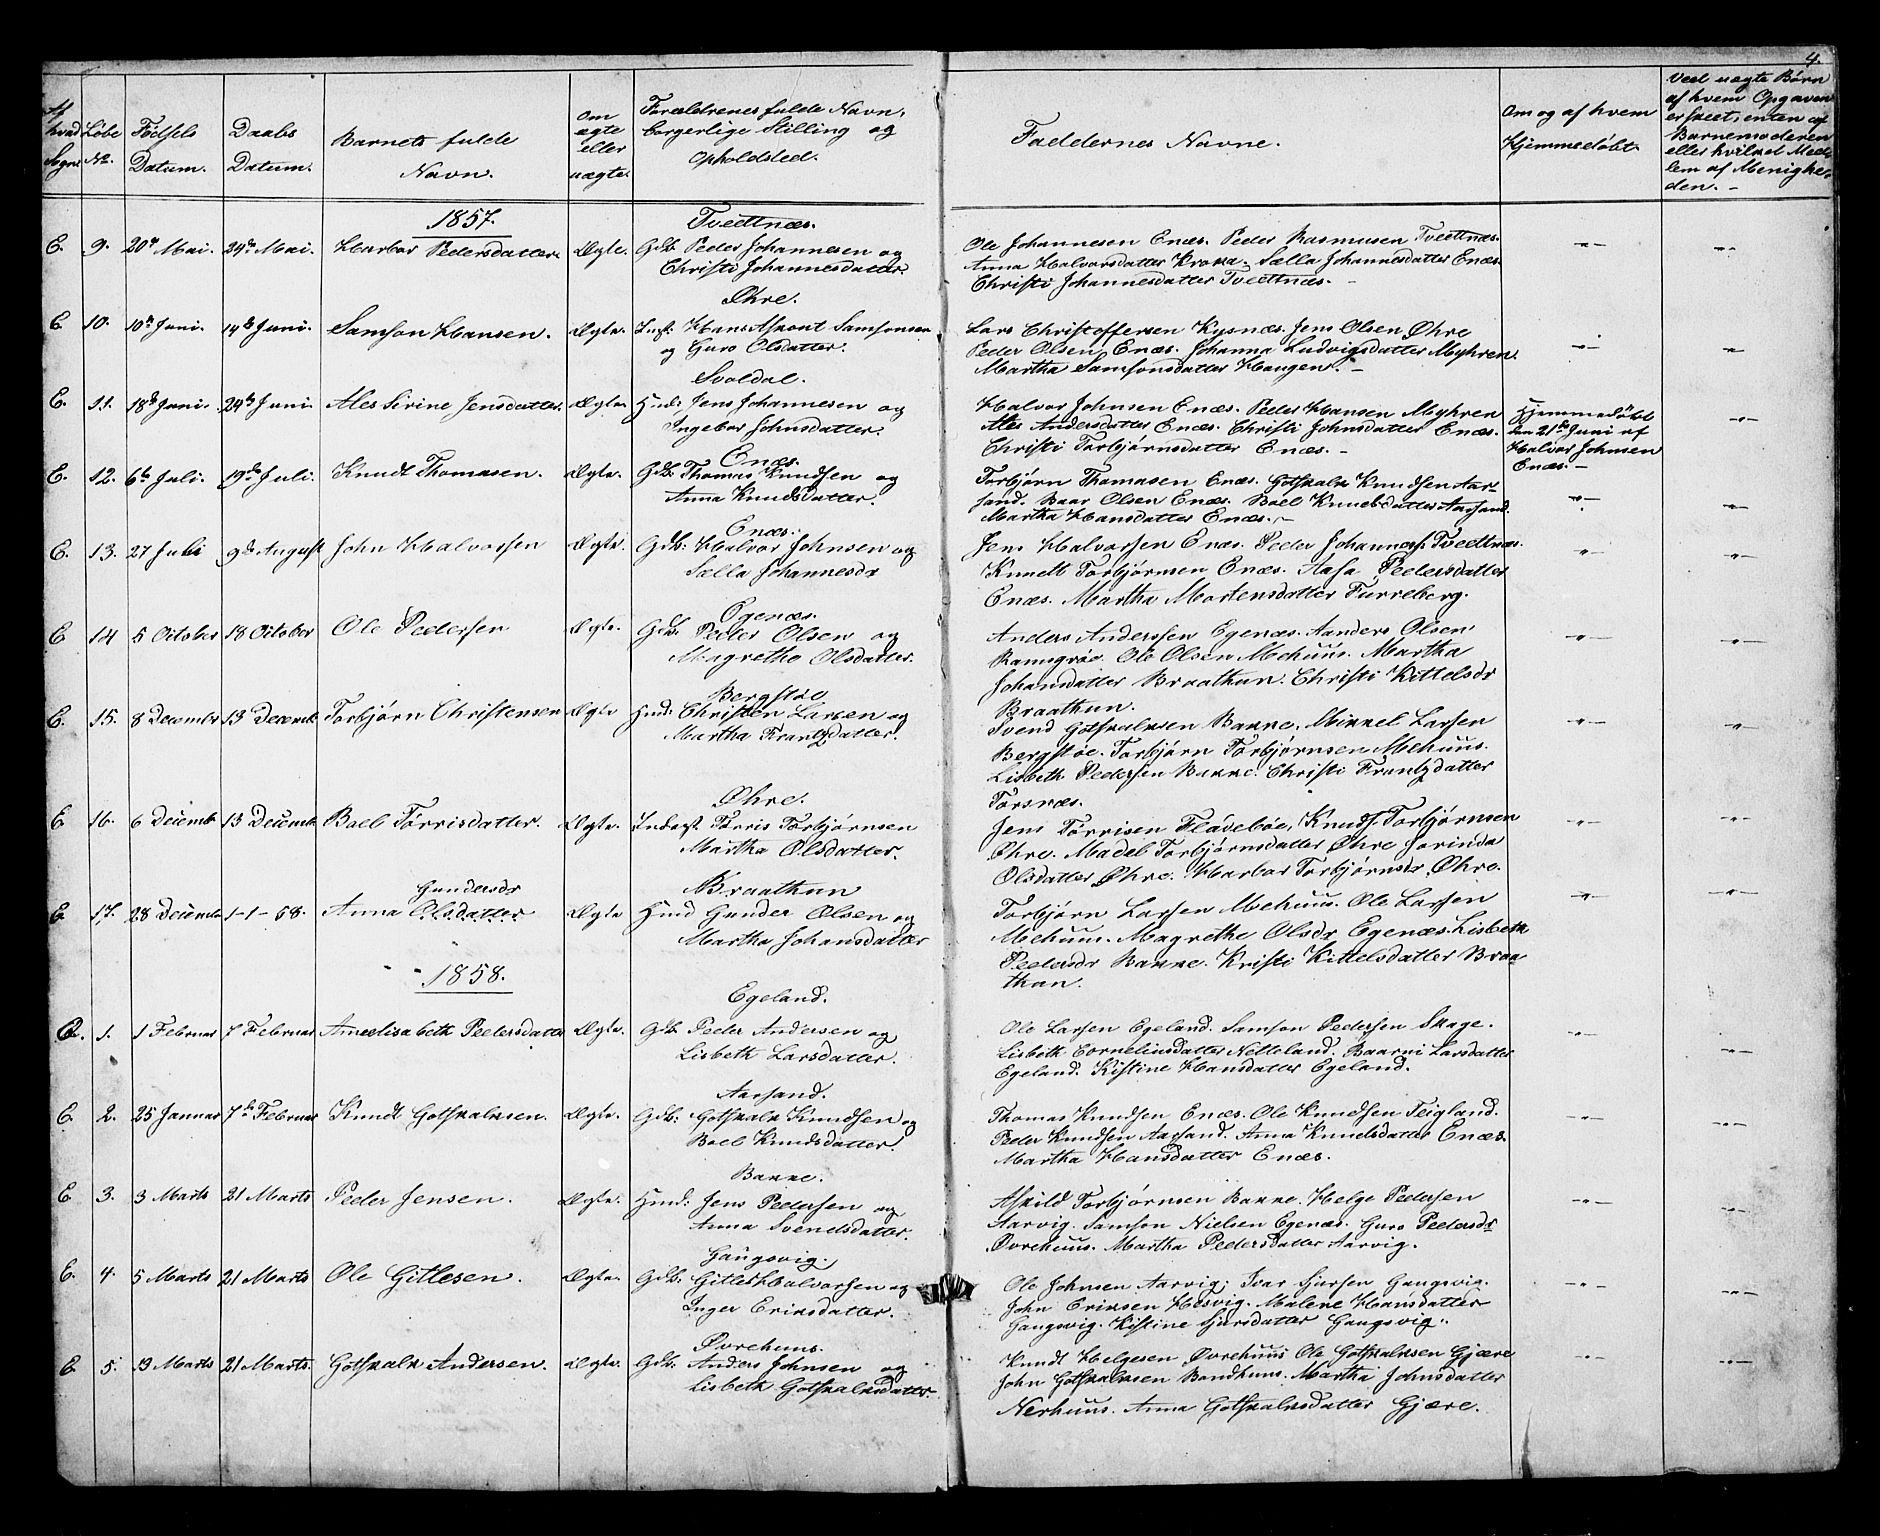 4.
Af hvad Sogn
Løbe No.
Fødsels Datum.
Daabs Datum.
Barnets fulde Navn.
Om ægte eller uægte.
Forældrenes fulde Navn, borgerlige Stilling og Opholdsted.
Faddernes Navne.
Om og af hvem Hjemmedøbt.
Ved uægte Børn af hvem Opgaven er skeet, enten af Barnemoderen eller hvilket Medlem af Menigheden. –
1857.
Tveitnæs.
E. 9. 20de Mai. 24de Mai. Harbor Pedersdatter. Ægte. Gdb. Peder Johannesen og
Christi Johannesdatter.
Ole Johannesen Enæs. Peder Rasmusen Tveitnæs.
Anna Halvorsdatter Kroka. Sælla Johannesdatter Enæs.
Christi Johannesdatter Tveitnæs. –
Øhre.
E. 10. 10de Juni. 14de Juni. Samson Hansen. Ægte. Indst. Hans Mont Samsonsen
og Guro Olsdatter.
Lars Christoffersen Kysnæs. Jens Olsen Øhre
Peder Olsen Enæs. Johanna Ludvigsdatter Myhren.
Martha Samsonsdatter Haugen. –
Svoldal.
E. 11. 18de Juni. 24de Juni. Ales Sirine Jensdatter. Ægte. Hmd. Jens Johannesen og
Ingebor Johnsdatter.
Halvor Johnsen Enæs. Peder Hansen Myhren
Ales Andersdatter Enæs. Christi Johnsdatter Enæs.
Christi Torbjørnsdatter Enæs. –
Hjemmedøbt
den 21de Juni af
Halvor Johnsen
Enæs. –
Enæs.
E. 12. 6te Juli. 19de Juli. Knudt Thomasen. Ægte. Gdb. Thomas Knudsen og
Anna Knudsdatter.
Torbjørn Thomasen Enæs. Gotskalk Knudsen Aar-
sand. Baar Olsen Enæs. Boel Knudsdatter Aarsand.
Martha Hansdatter Enæs. –
Enæs.
E. 13. 27 Juli 9de August John Halvorsen Ægte. Gdb: Halvor Johnsen og
Sælla Johannesdr
Jens Halvorsen Enæs. Peder Johannesf. Tveitnæs.
Knudt Torbjørnsen Enæs. Aasa Pedersdatter
Enæs. Martha Mortensdatter Furreberg.
Egenæs.
E 14 5 October 18 October Ole Pedersen Ægte. Gdb. Peder Olsen og
Magrethe Olsdatter.
Anders Anderssen Egenæs. Aanders Olsen
Ramsgrøe. Ole Olsen Mehuus. Martha
Johansdatter Braathun. Christi Kittelsdr
Braathun.
Bergstøe
E. 15. 8 December 13 Decemb. Torbjørn Christensen Ægte Hmd. Christen Larsen og
Martha Frantzdatter.
Svend Gotskalksen Bakke. Mikkel Larsen
Bergstøe. Torbjørn Torbjørnsen Mehuus.
Lisbeth Pedersen Bakke. Christi Frantzdatter
Torsnæs.
Øhre.
E. 16. 6 Decemb. 13 Decemb. Boel Tørrisdatter. Ægte. Inderst. Tørris Torbjørnsen
Martha Olsdatter.
Jens Tørrisen Flåtebøe, Knudt Torbjørnsen
Øhre. Madel Torbjørnsdatter Øhre Jorinda
Olsdatter Øhre. Harbor Torbjørnsdr Øhre.
Gundersdr
Braathun
E. 17. 28 Decemb. 1-1-58. Anna Olsdatter Ægte Hmd Gunder Olsen og
Martha Johansdatter
Torbjørn Larsen Mehuus. Ole Larsen
Mehuus. Magrethe Olsdr Egenæs. Lisbeth
Pedersdr Bakke. Kristi Kittelsdatter Braa-
thun.
1858.
Egeland.
E. 1. 1 Februar 7 Februar Anneelisabeth Pedersdatter Ægte. Gdb Peder Andersen og
Lisbeth Larsdatter.
Ole Larsen Egeland. Samson Pedersen Skage.
Lisbeth Corneliusdatter Netteland. Baarni Larsdatter
Egeland. Kistine Hansdatter Egeland.
Aarsand.
E. 2. 25 Januar 7de Februar Knudt Gotskalksen. Ægte. Gdb: Gotskalk Knudsen og
Boel Knudsdatter.
Thomas Knudsen Enæs. Ole Knudsen Teigland.
Peder Knudsen Aarsand. Anna Knudsdatter Enæs.
Martha Hansdatter Enæs.
Bakke.
E 3. 3 Marts 21 Marts Peder Jensen. Ægte. Hmd. Jens Pedersen og
Anna Svendsdatter.
Askild Torbjørnsen Bakke. Helge Pedersen
Aarvig. Samson Nielsen Egenæs. Guro Pedersdr
Øvrehuus. Martha Pedersdatter Aarvig.
Gangsvig.
E. 4. 5 Marts 21 Marts Ole Gitlesen. Ægte. Gdb: Gitle Halvorsen og
Inger Eriksdatter.
Ole Johnsen Aarvig; Ivar Sjursen Gangsvig.
John Eriksen Hesvig. Malene Hansdatter
Gangsvig. Kistine Sjursdatter Gangsvig.
Øvrehuus.
E 5. 13 Marts 21 Marts. Gotskalk Andersen. Ægte. Gdb: Anders Johnsen og
Lisbeth Gotskalksdatter.
Knudt Helgesen Øvrehuus Ole Gotskalksen Gjære
John Gotskalksen Bondhuus. Martha Johnsdatter
Nerhuus. Anna Gotskalksdatter Gjære.